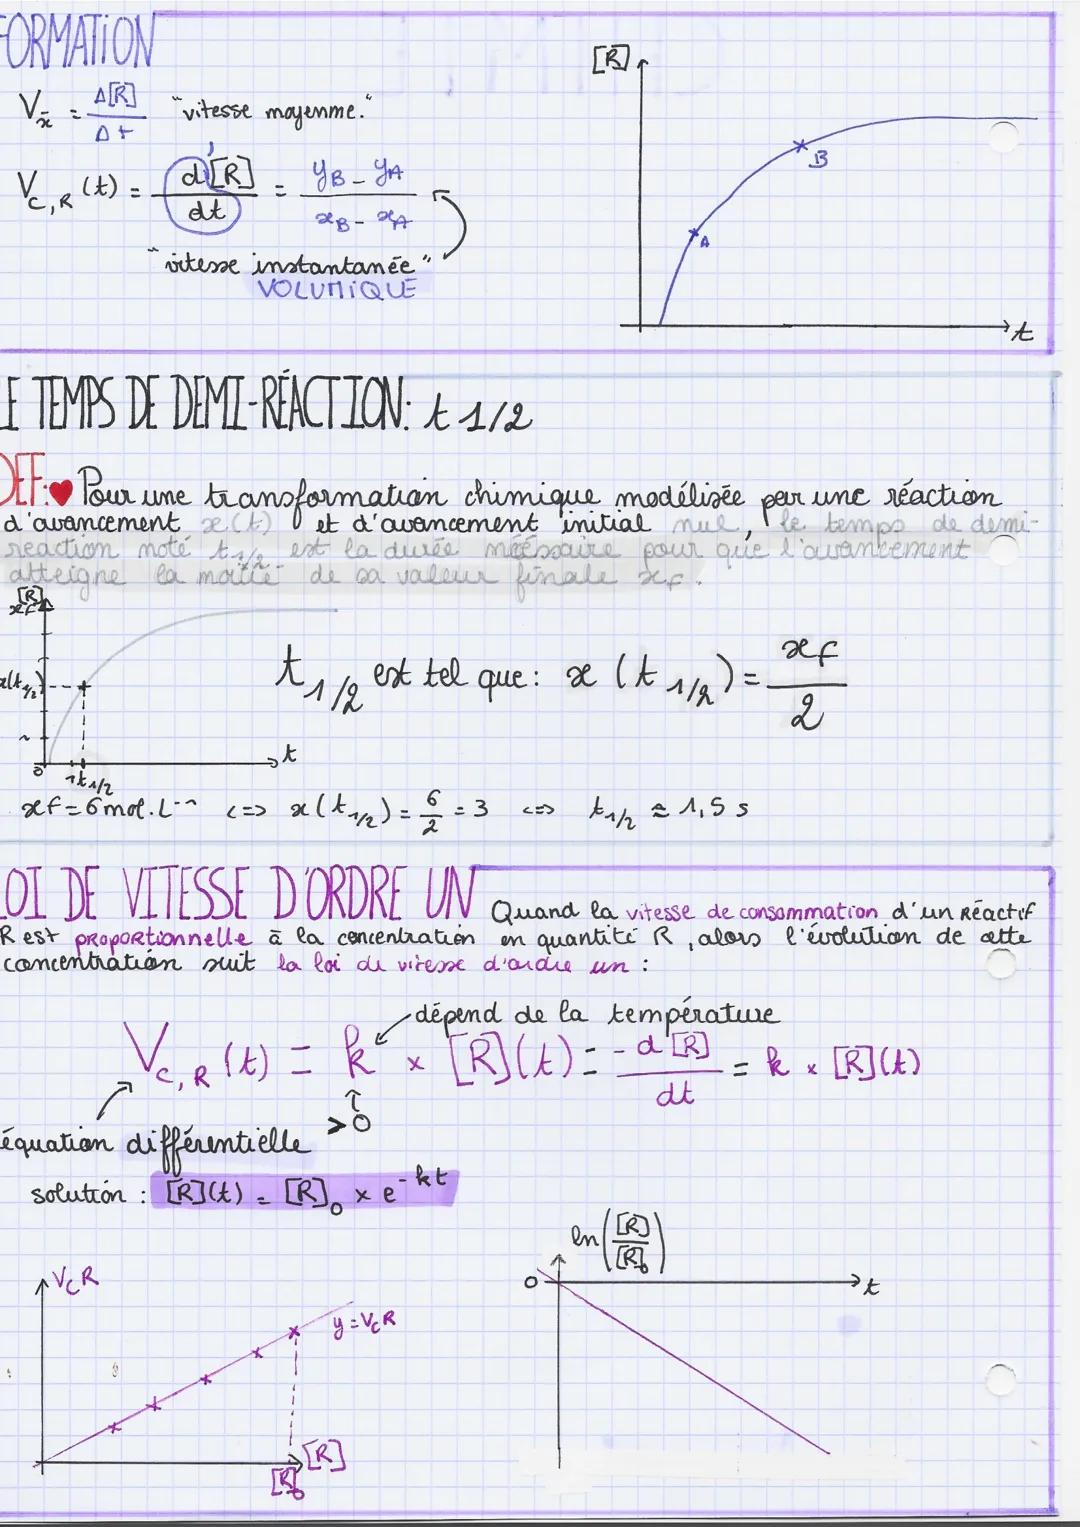 FORMATION
V x̄ = Δ[R] / Δt "vitesse moyenne."
V C,R (t) = d[R] / dt = yB - yA / xB - xA
"vitesse instantanée"
VOLUMIQUE
[R]
A
B
t
LE TEMPS DE DEMI-RÉACTION: t 1/2
DEF: ♥ Pour une transformation chimique modélisée par une réaction
d'avancement x(t) et d'avancement initial nul, le temps de demi-
reaction noté t1/2 est la durée nécessaire pour que l'avancement
atteigne la moitié de sa valeur finale xf.
[R]
xf
x(t1/2)
1
0
1 t1/2
t
t1/2 est tel que: x (t1/2) = xf / 2
xf = 6 mol.L-1 <=> x(t1/2) = 6/2 = 3 <=> t1/2 ≈ 1,5 s
LOI DE VITESSE D'ORDRE UN Quand la vitesse de consommation d'un Réactif
R est proportionnelle à la concentration en quantité R, alors l'évolution de cette
concentration suit la loi de vitesse d'ordre un :
dépend de la température
V C,R (t) = k × [R](t) = -d[R] / dt = k × [R](t)
> 0
équation différentielle
solution : [R](t) = [R]0 × e-kt
VC R
y = VC R
[R]
[R]0
ln([R]/[R]0)
0
t